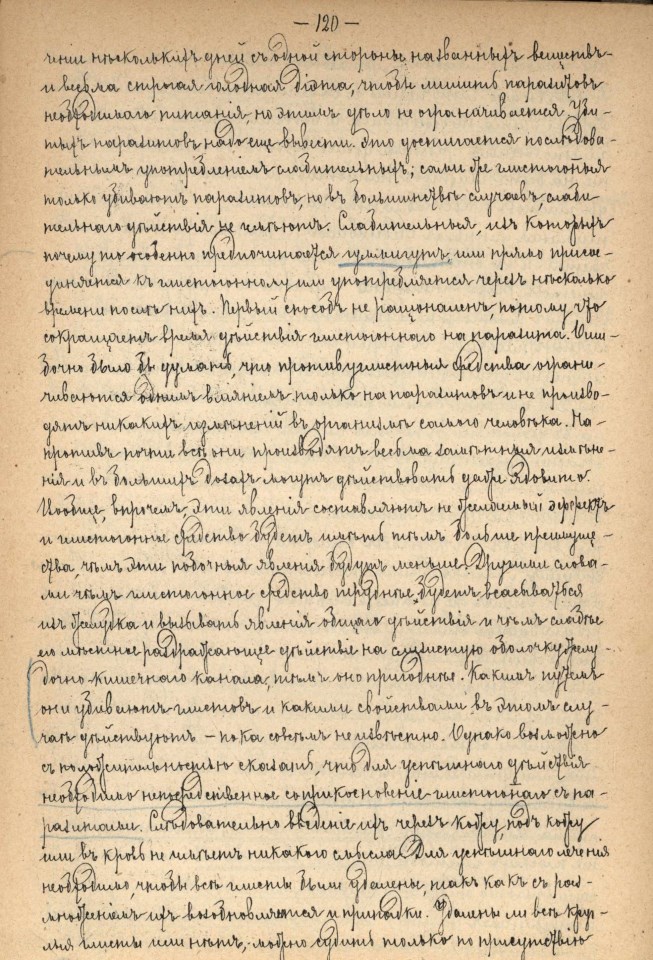 — 120 —
ченіи нѣсколькихъ дней съ одной стороны названныхъ веществъ
и весьма строгая голодная діэта, чтобы лишить паразитовъ
необходимаго питанія, но этимъ дѣло не ограничивается. Уби-
тыхъ паразитовъ надо еще вывести. Это достигается послѣдова-
тельнымъ употребленіемъ слабительныхъ; сами же глистогонныя
только убиваютъ паразитовъ, но въ большинствѣ случаевъ, слаби
тельнаго дѣйствія не имѣютъ. Слабительныя, изъ которыхъ
почему то особенно предпочитается гуммигутъ, или прямо присое-
диняется къ глистогонному или употребляется черезъ нѣсколько
времени послѣ нихъ. Первый способъ не раціоналенъ, потому что
сокращаетъ время дѣйствія глистогоннаго на паразита. Оши-
бочно было бы думать, что противуглистныя средства ограни-
чиваются однимъ вліяніемъ только на паразитовъ и не произво-
дятъ никакихъ измѣненій въ организмѣ самого человѣка. На-
противъ почти всѣ они производятъ весьма замѣтныя измѣне-
нія и въ большихъ дозахъ могутъ дѣйствовать даже ядовито.
Вообще, впрочемъ, эти явленія составляютъ не желаемый эффектъ
и глистогонное средство будетъ имѣть тѣмъ больше преимуще-
ства, чѣмъ эти побочныя явленія будутъ меньше. Другими слова-
ми чѣмъ глистогонное средство труднѣе будетъ всасываться
изъ желудка и вызывать явленія общаго дѣйствія и чѣмъ слабѣе
его мѣстное раздражающее дѣйствіе на слизистую оболочку желу-
дочно-кишечнаго канала, тѣмъ оно пригоднѣе. Какимъ путемъ
они убиваютъ глистовъ и какими свойствами въ этомъ слу-
чаѣ дѣйствуютъ — пока совсѣмъ неизвѣстно. Однако возможно
съ положительностью сказать, что для успѣшнаго дѣйствія
необходимо непосредственное соприкосновеніе глистогоннаго съ па-
разитами. Слѣдовательно введеніе ихъ черезъ кожу, подъ кожу
или въ кровь не имѣетъ никакого смысла. Для успѣшнаго леченія
необходимо, чтобы всѣ глисты были удалены, такъ какъ съ раз-
множеніемъ ихъ возобновляются и припадки. Удалены ли всѣ круг-
лыя глисты или нѣтъ, можно судить только по присутствію